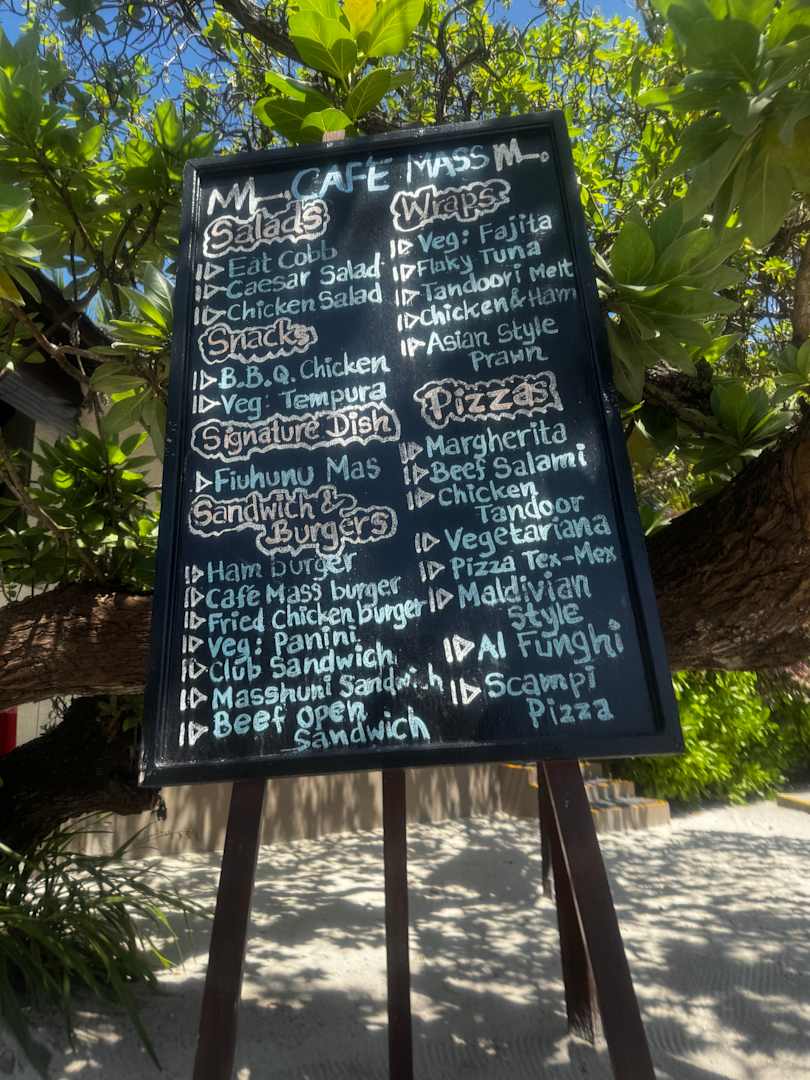 CAFÉ MASS
Salads
Eat Cobb
Caesar Salad
Chicken Salad
Snacks
B.B.Q. Chicken
Veg: Tempura
Signature Dish
Fiuhunu Mas
Sandwich &
Burgers
Ham burger
Café Mass burger
Fried Chicken burger
Veg: Panini
Club Sandwich
Masshuni Sandwich
Beef Open
Sandwich
Wraps
Veg: Fajita
Flaky Tuna
Tandoori Melt
Chicken & Ham
Asian Style
Prawn
Pizzas
Margherita
Beef Salami
Chicken
Tandoor
Vegetariana
Pizza Tex-Mex
Maldivian
Style
Al Funghi
Scampi
Pizza